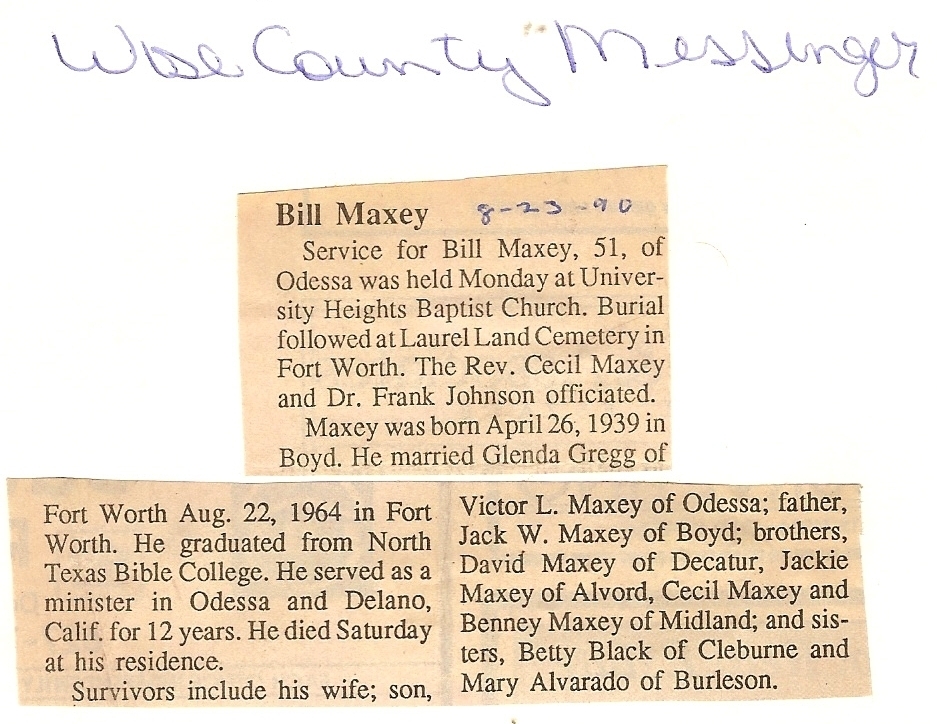 Wise County Messenger
Bill Maxey 8-23-90
Service for Bill Maxey, 51, of
Odessa was held Monday at Univer-
sity Heights Baptist Church. Burial
followed at Laurel Land Cemetery in
Fort Worth. The Rev. Cecil Maxey
and Dr. Frank Johnson officiated.
Maxey was born April 26, 1939 in
Boyd. He married Glenda Gregg of
Fort Worth Aug. 22, 1964 in Fort
Worth. He graduated from North
Texas Bible College. He served as a
minister in Odessa and Delano,
Calif. for 12 years. He died Saturday
at his residence.
Survivors include his wife; son,
Victor L. Maxey of Odessa; father,
Jack W. Maxey of Boyd; brothers,
David Maxey of Decatur, Jackie
Maxey of Alvord, Cecil Maxey and
Benney Maxey of Midland; and sis-
ters, Betty Black of Cleburne and
Mary Alvarado of Burleson.